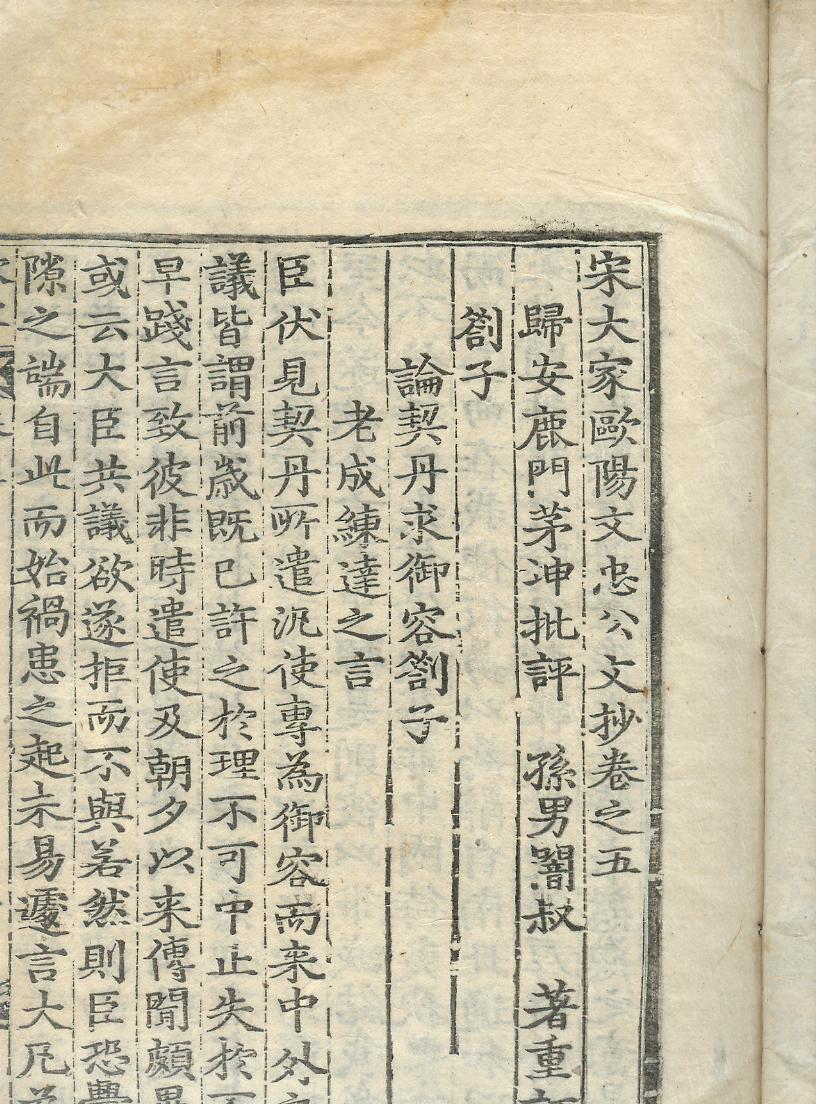 宋大家歐陽文忠公文抄卷之五
歸安鹿門茅坤批評 孫男闇叔 著重
劄子
論契丹求御容劄子
老成練達之言
臣伏見契丹所遣泛使專為御容而来中外
議皆謂前歲既已許之於理不可中止失於
早踐言致彼非時遣使及朝夕以来傳聞頗異
或云大臣共議欲遂拒而不與若然則臣恐釁
隙之端自此而始禍患之起未易遽言大凡